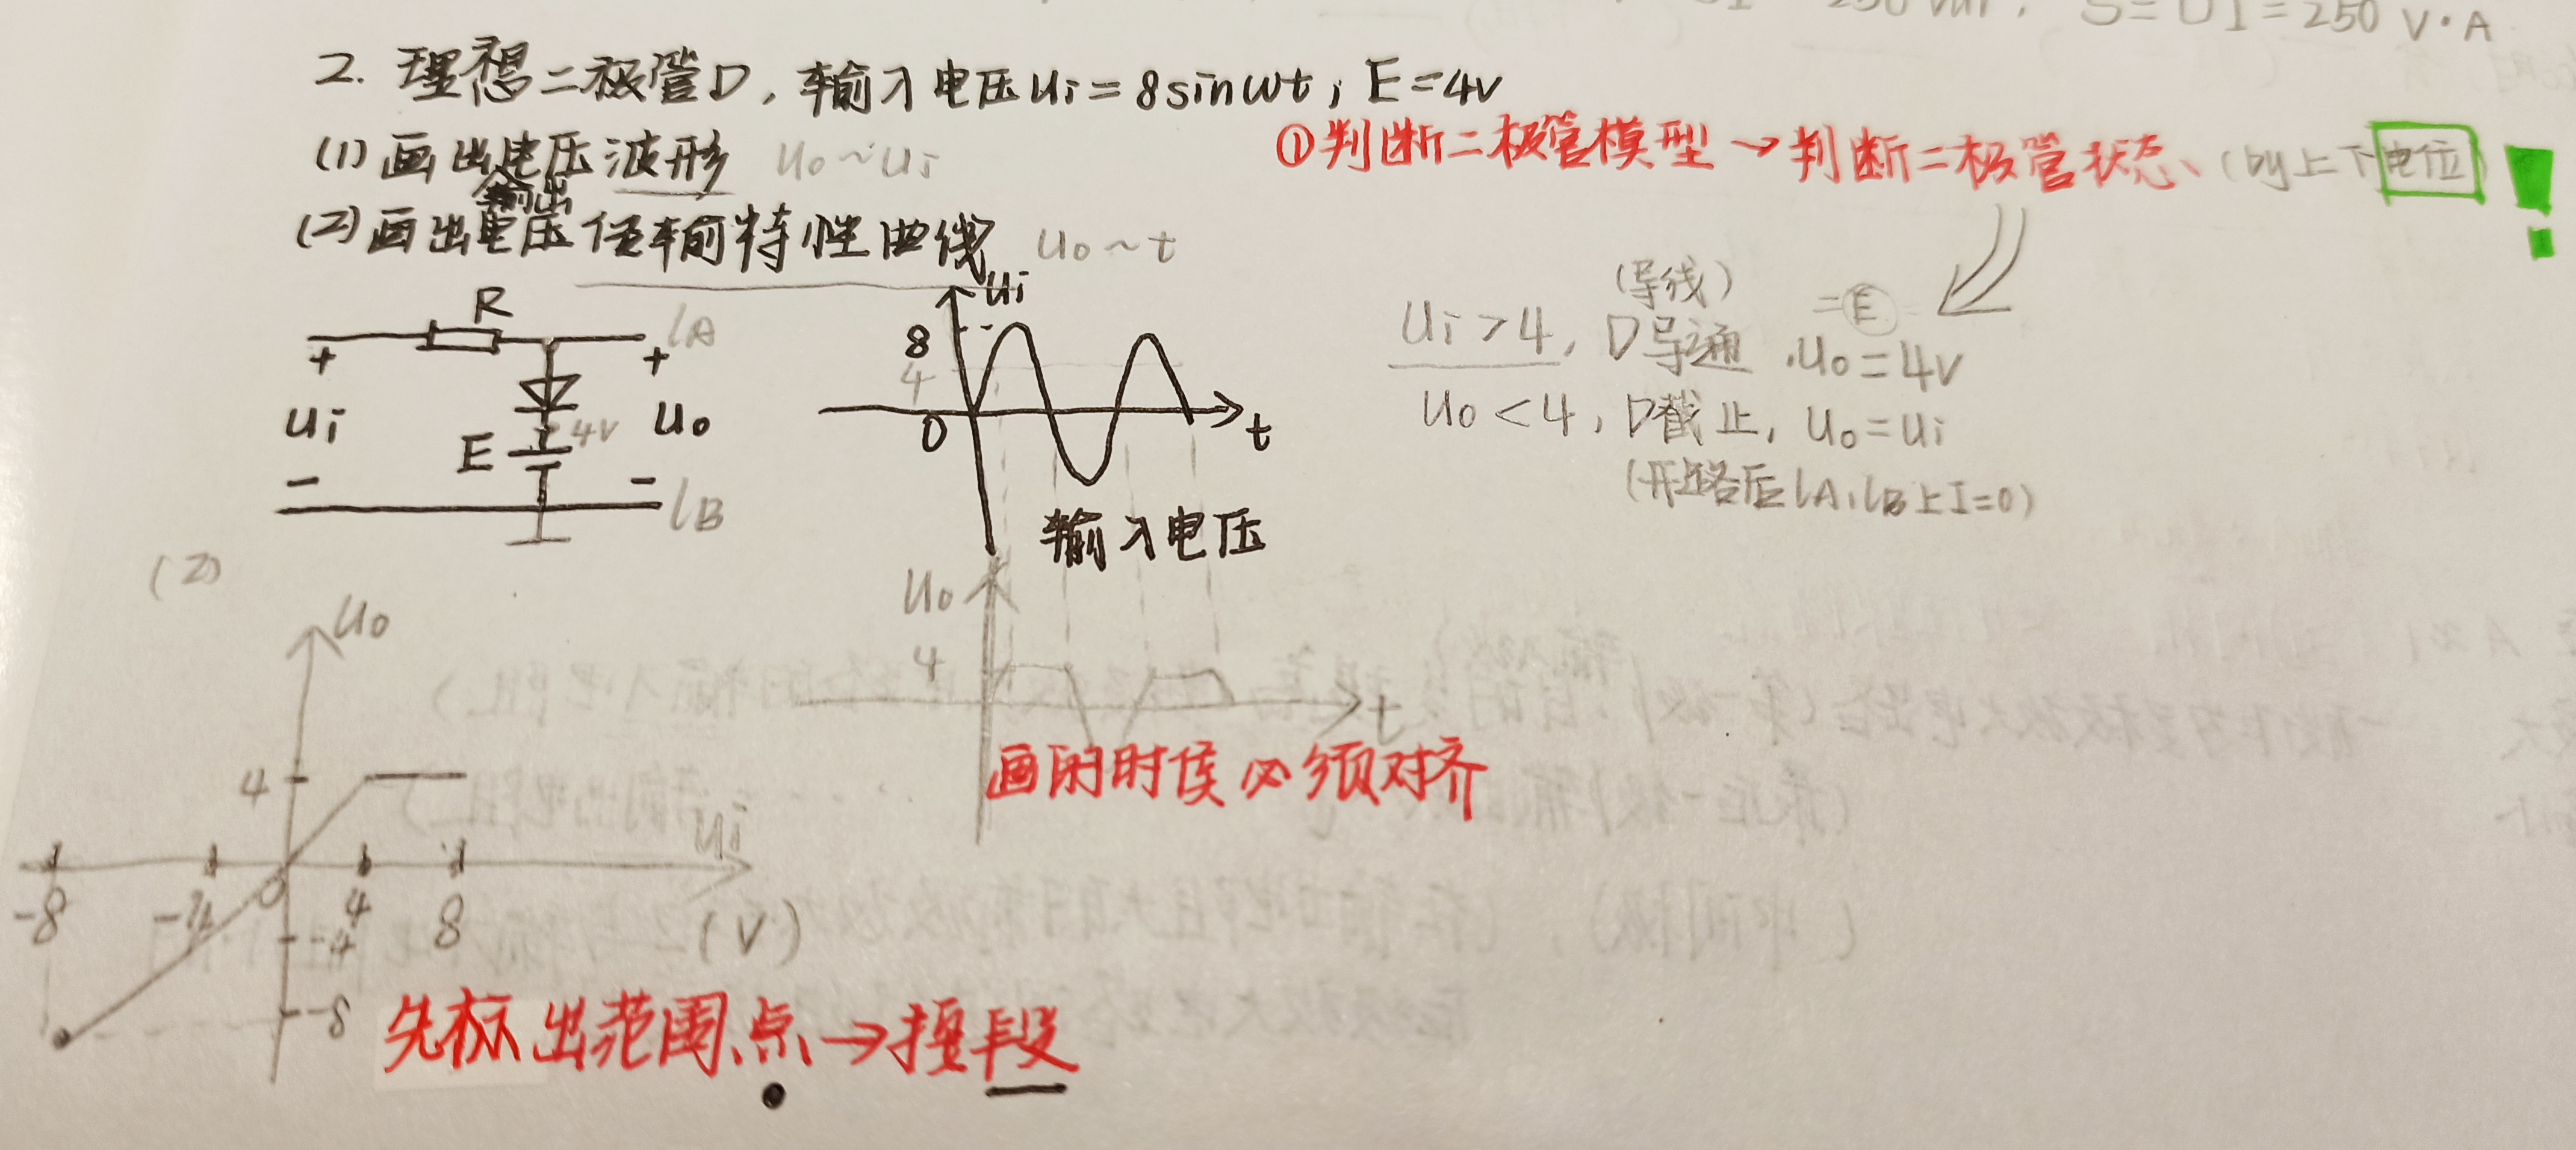 S=UI=250 V·A
2. 理想二极管D,输入电压ui=8sinwt; E=4V
(1)画出电压波形 uo~ui
①判断二极管模型→判断二极管状态、(的上下电位) !
输出
(2)画出电压传输特性曲线 uo~t
R
lA
+
+
ui
uo
4V
E
-
-
lB
ui
8
4
0
t
输入电压
(导线) =E
ui>4, D导通, uo=4V
uo<4, D截止, uo=ui
(开路后lA,lB上I=0)
uo
4
t
画的时候必须对齐
(2)
uo
4
ui
-8
-4
0
4
8
(V)
-4
-8
先标出范围、点→接段